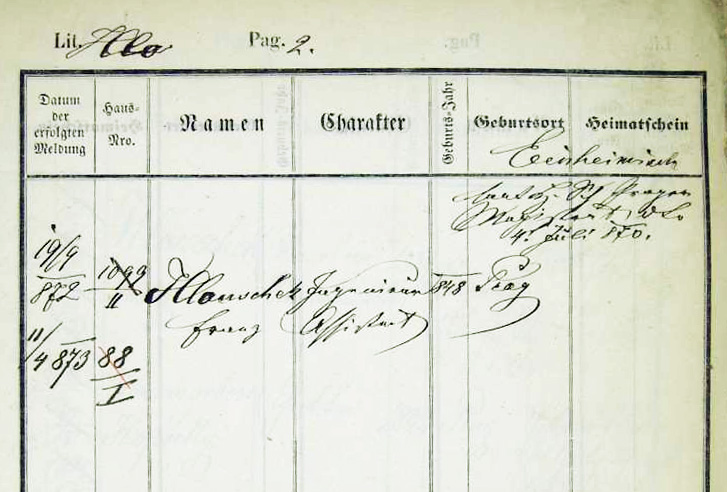 Lit. Hla Pag. 2.
Datum der erfolgten Meldung
Haus-Nro.
Namen
Charakter
Geburts-Jahr
Geburtsort
Heimatschein
Einheimisch
laut H. Sch. Prager
Magistrat ddo
4. Juli 870.
19/9 872
1099/II
Hlauschek Ingenieur 848 Prag
Franz Assistent
11/4 873 88/I